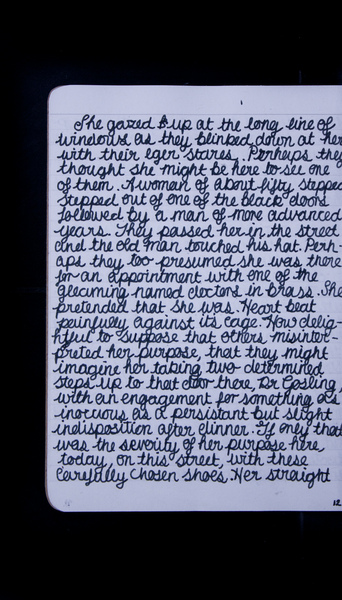 She gazed up at the long line of
windows as they blinked down at her
with their eger stares. Perhaps they
thought she might be here to see one
of them. A woman of about fifty stepped
stepped out of one of the black doors
followed by a man of more advanced
years. They passed her in the street
and the old man touched his hat. Perh-
aps they too presumed she was there
for an appointment with one of the
gleaming named doctors in brass. She
pretended that she was. Heart beat
painfully against its cage. How delig-
htful to suppose that others misinter-
preted her purpose, that they might
imagine her taking two determined
steps up to that door there, Dr Gosling,
with an engagement for something as
inocuous as a persistant but slight
indisposition after dinner. If only that
was the severity of her purpose here
today, on this street, with these
carefully chosen shoes. Her straight
12